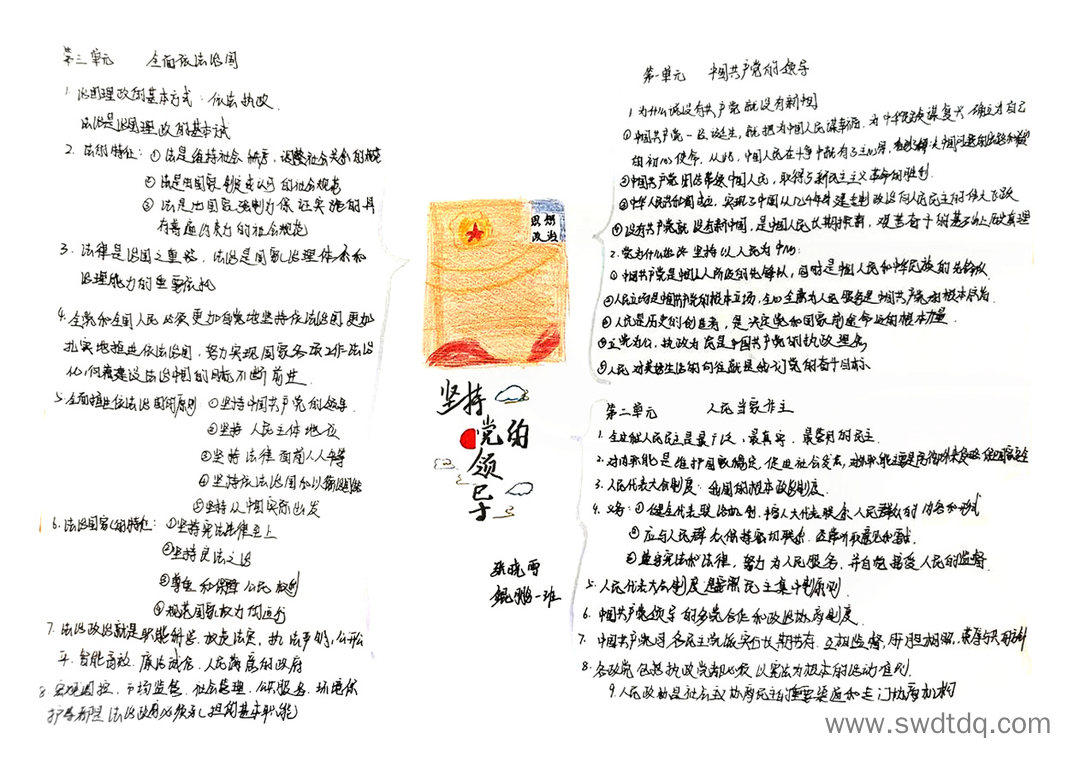 第三单元 全面依法治国
1. 治国理政的基本方式：依法执政.
法治是治国理政的基本
2. 法律的特征：①法是维持社会秩序，调整社会关系的规范
②法是由国家制定或认可的社会规范
③法是由国家强制力保证实施的具
有普遍约束力的社会规范
3. 法律是治国之重器，法治是国家治理体系和
治理能力的重要依托
4. 全党和全国人民必须更加自觉地坚持依法治国更加
扎实地推进依法治国，努力实现国家各项工作法治
化，向着建设法治中国的目标不断前进.
5. 全面推进依法治国的原则：①坚持中国共产党的领导.
②坚持人民主体地位
③坚持法律面前人人平等
④坚持依法治国和以德治国相结合
⑤坚持从中国实际出发
6. 法治国家的特征：①坚持宪法法律至上
②坚持良法之治
③尊重和保障公民权利
④规范国家权力的运行
7. 法治政府就是职能科学、权责法定、执法严明、公开公
平、智能高效、廉洁诚信、人民满意的政府
8. 宏观调控、市场监管、社会管理、公共服务、环境保
护等都是法治政府必须承担的基本职能
思想
政治
坚持
党的
领
导
张晓雪
鲲鹏一班
第一单元 中国共产党的领导
1. 为什么说没有共产党就没有新中国
①中国共产党一经诞生，就把为中国人民谋幸福，为中华民族谋复兴确立为自己
的初心使命，从此，中国人民在斗争中就有了主心骨，
②中国共产党团结带领中国人民，取得了新民主主义革命的胜利.
③中华人民共和国成立，实现了中国从几千年封建专制政治向人民民主的伟大飞跃
④没有共产党就没有新中国，是中国人民长期探索，艰苦奋斗的基本历史真理
2. 党为什么始终坚持以人民为中心：
①中国共产党是中国工人阶级的先锋队，同时是中国人民和中华民族的先锋队.
②人民立场是中国共产党的根本立场，全心全意为人民服务是中国共产党的根本宗旨.
③人民是历史的创造者，是决定党和国家前途命运的根本力量.
④立党为公，执政为民是中国共产党的执政理念
⑤人民对美好生活的向往就是我们党的奋斗目标.
第二单元 人民当家作主
1. 全过程人民民主是最广泛、最真实、最管用的民主.
2. 对内职能是维护国家稳定，促进社会发展，对外职能主要是防御外来侵略保卫国家安全
3. 人民代表大会制度：我国的根本政治制度.
4. 义务：①健全代表联络机制，丰富人大代表联系人民群众的内容和形式
②应与人民群众保持密切联系，经常听取意见和要求
③遵守宪法和法律，努力为人民服务，并自觉接受人民的监督.
5. 人民代表大会制度是实行民主集中制原则.
6. 中国共产党领导的多党合作和政治协商制度.
7. 中国共产党同各民主党派实行长期共存、互相监督、肝胆相照、荣辱与共的方针
8. 各政党包括执政党都必须以宪法为根本的活动准则.
9. 人民政协是社会主义协商民主的重要渠道和专门协商机构
www.swdtdq.com